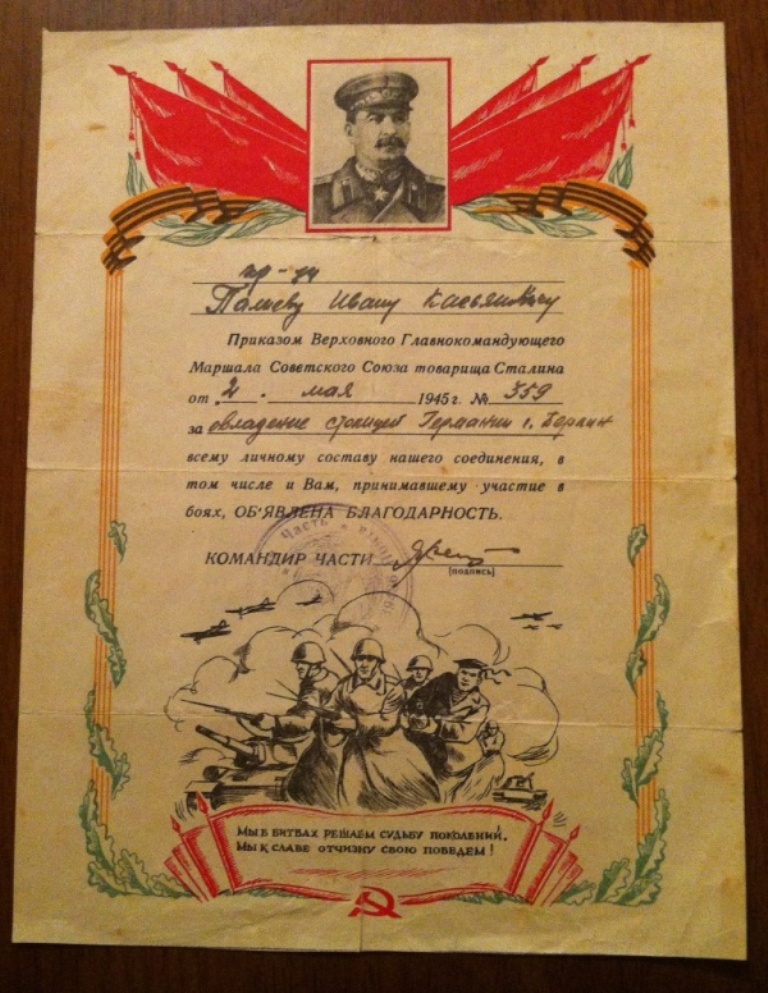 кр-цу
Палиеву Ивану Касьяновичу
Приказом Верховного Главнокомандующего
Маршала Советского Союза товарища Сталина
от „2 . мая 1945 г. № 359
за овладение столицей Германии г. Берлин
всему личному составу нашего соединения, в
том числе и Вам, принимавшему участие в
боях, ОБ'ЯВЛЕНА БЛАГОДАРНОСТЬ.
КОМАНДИР ЧАСТИ
(подпись)
Часть
МЫ В БИТВАХ РЕШАЕМ СУДЬБУ ПОКОЛЕНИЙ,
МЫ К СЛАВЕ ОТЧИЗНУ СВОЮ ПОВЕДЕМ!